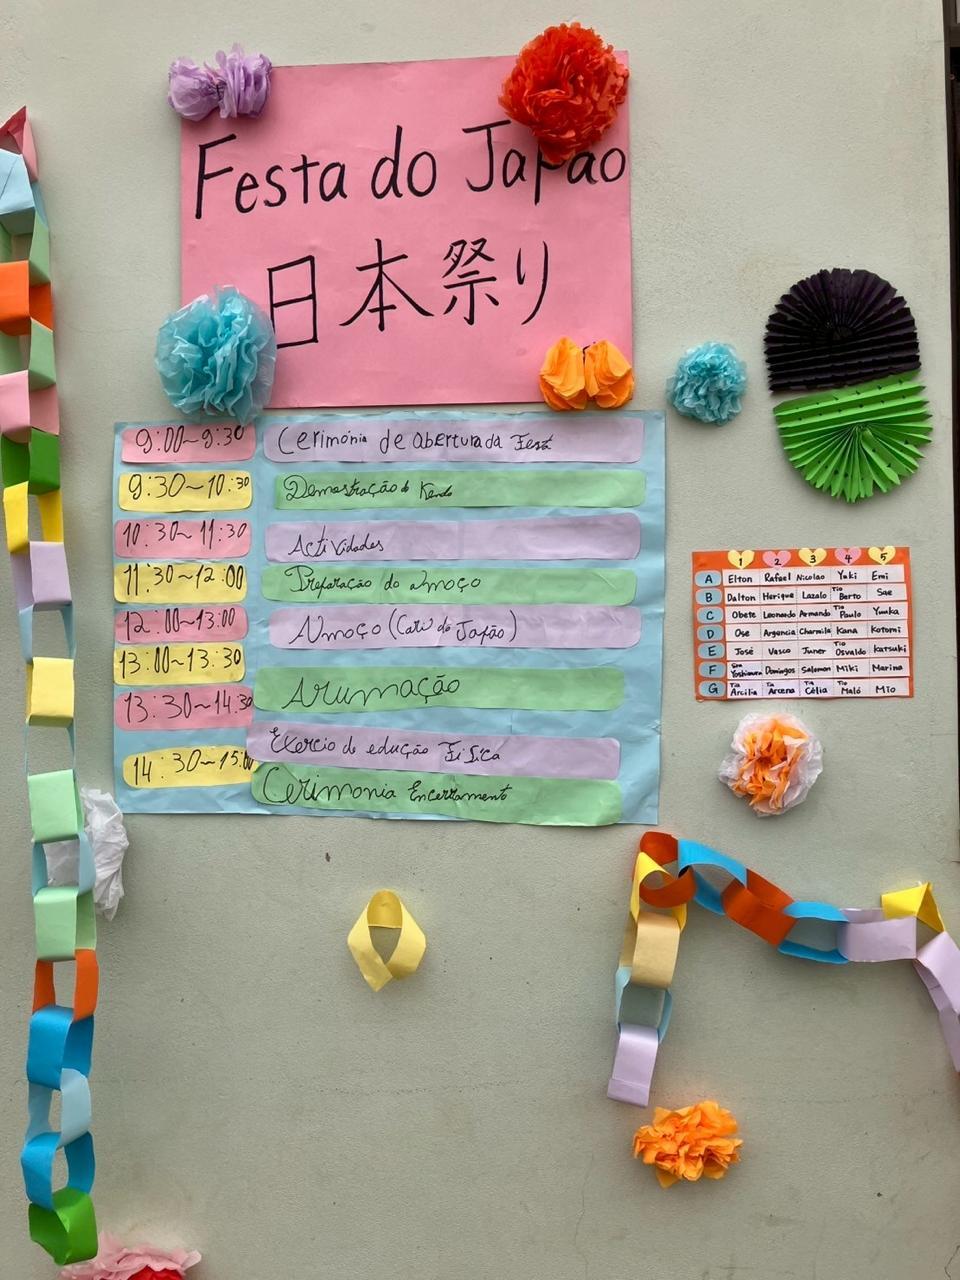 Festa do Japão
日本祭り
9:00~9:30 Cerimónia de abertura da Fest
9:30~10:30 Demostração de Kendo
10:30~11:30 Actividades
11:30~12:00 Preparação do almoço
12:00~13:00 Almoço (Caril do Japão)
13:00~13:30 Arumação
13:30~14:30 Exercio de edução Fisica
14:30~15:00 Cerimonia Encerramento
1 2 3 4 5
A Elton Rafael Nicolao Yuki Emi
B Dalton Herique Lazalo Tio Berto Sae
C Obete Leonardo Armando Tio Paulo Yuuka
D Ose Argencia Charmila Kana Kotomi
E José Vasco Juner Tio Osvaldo Katsuki
F Domingos Salomon Miki Marina
G Tia Arcilia Tia Arcena Tia Célia Tio Maló Mio